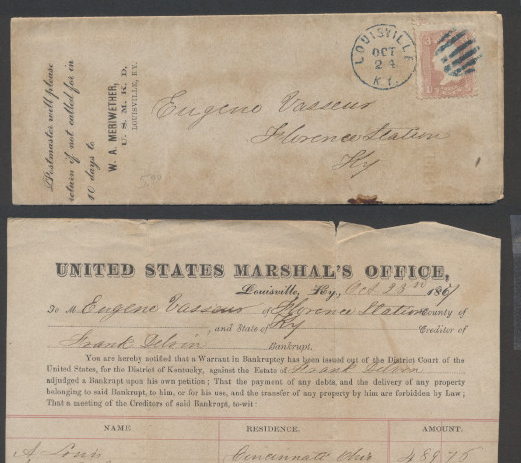 Postmaster will please
return if not called for in
10 days to
W. A. MERIWETHER,
U. S. M. K. D.
LOUISVILLE, KY.
LOUISVILLE
OCT
24
KY.
Eugene Vasseur
Florence Station
Ky
UNITED STATES MARSHAL'S OFFICE,
Louisville, Ky., Oct 23rd 1867
To M Eugene Vasseur of Florence Station County of
and State of Ky Creditor of
Frank Bankrupt.
You are hereby notified that a Warrant in Bankruptcy has been issued out of the District Court of the
United States, for the District of Kentucky, against the Estate of Frank
adjudged a Bankrupt upon his own petition; That the payment of any debts, and the delivery of any property
belonging to said Bankrupt, to him, or for his use, and the transfer of any property by him are forbidden by Law;
That a meeting of the Creditors of said Bankrupt, to-wit:
NAME RESIDENCE. AMOUNT.
A. Cincinnati Ohio 489.75